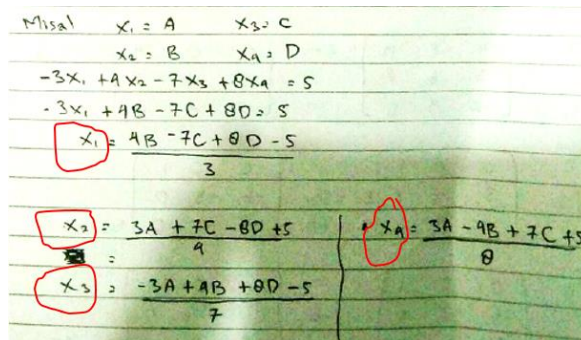 Misal x₁ = A x₃ = C
x₂ = B x₄ = D
-3x₁ + 4x₂ - 7x₃ + 8x₄ = 5
-3x₁ + 4B - 7C + 8D = 5
x₁ = 4B - 7C + 8D - 5
3
x₂ = 3A + 7C - 8D + 5
4
=
x₃ = -3A + 4B + 8D - 5
7
x₄ = 3A - 4B + 7C + 5
8